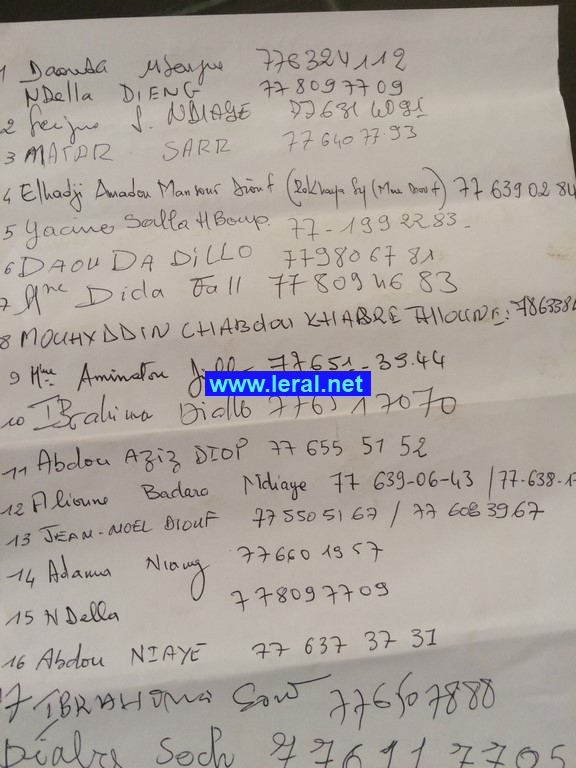 1 Daouda 776324112
NDella DIENG 778097709
2 S. NDIAYE
3 MATAR SARR 77 640 77.93
4 Elhadji Amadou Mansour Diouf (Rokhaya Sy (Mme Diouf) 77 639 02 84
5 Yacine Salla 77-199 22 83-
6 DAOUDA DiLLO 77980 67 81
7 Mme Dida Fall 77 809 46 83
8 MOUHYDDIN KHABRE
9 Mme Aminatou 77651-39.44
www.leral.net
10 IBrahima Diallo 17070
11 Abdou AZiZ DIOP 77 655 51 52
12 Alioune Badara Ndiaye 77 639-06-43 / 77-638-1
13 JEAN-NOEL DIOUF 77 550 51 67 / 77 608 39 67
14 Adama Niang 77660 1957
15 NDella 778097709
16 Abdou NIAYE 77 637 37 31
17 Sow 776507888
Soch 776117705